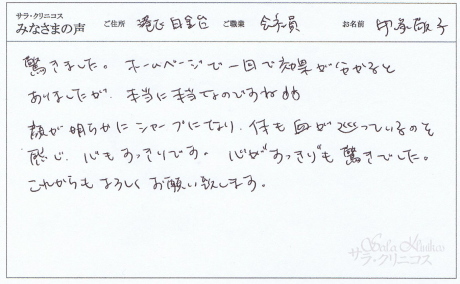 サラ・クリニコス
みなさまの声
ご住所 港区白金台 ご職業 会社員 お名前 印象 敬子
驚きました。ホームページで一回で効果が分かると
ありましたが、本当に本当なのですね
顔が明らかにシャープになり、体も血が巡っているのを
感じ、心もすっきりです。心が"すっきり"も驚きでした。
これからもよろしくお願い致します。
Sala Klinikos
サラ・クリニコス